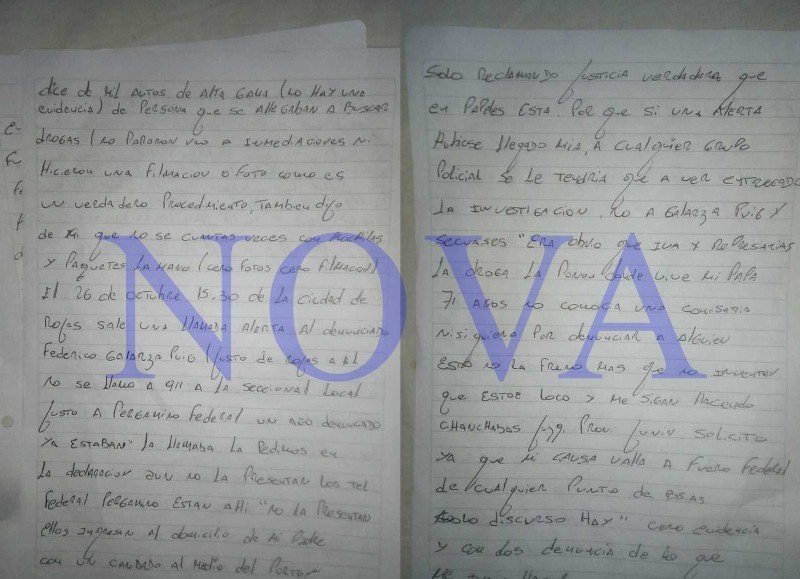 dice de mil autos de alta gama (no hay una
evidencia) de persona que se allegaban a buscar
drogas (no pararon uno a inmediaciones ni
hicieron una filmacion o foto como es
un verdadero procedimiento, tambien dijo
de mi que no se cuantas veces con mochilas
y paquetes la mano (cero fotos cero filmacion)
El 26 de octubre 15.30 de la ciudad de
Rojas sale una llamada alerta al denunciado
Federico Galarza Puig (justo de Rojas a el
no se llamo a 911 a la seccional local
justo a Pergamino Federal un año denuncado
ya estaban" la llamada la pedimos en
la declaracion aun no la presentan los tel
Federal Pergamino estan alli "no la presentan
ellos ingresan al domicilio de mi padre
con un candado al medio del porton
Solo reclamando justicia verdadera que
en papeles esta. Por que si una alerta
hubiese llegado mia, a cualquier grupo
policial se le tendria que a ver entregado
la investigacion. no a Galarza Puig y
secuases "era obvio que iva x represarias
la droga la ponen donde vive mi papa
71 años no conocia una comisaria
ni siquiera por denunciar a alguien
Esto no la freno mas que no inventen
que estoe loco y me sigan haciendo
chanchadas juzg. Prov. Junin. Solicito
ya que mi causa valla a fuero Federal
de cualquier punto de BSAS
Solo discurso hay" cero evidencia
y con dos denuncia de lo que
NOVA